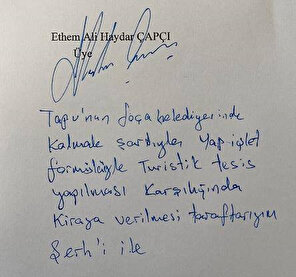 Ethem Ali Haydar ÇAPÇI
Üye
Tapu'nun foça belediyerinde
Kalmak şartıyla Yap-işlet
formülüyle Turistik tesis
yapılması Karşılığında
Kiraya verilmesi taraftarıyım
Şerh'i ile